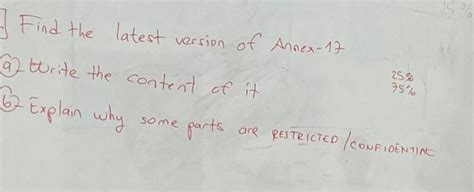 ] Find the latest version of Annex-17
a) Write the content of it 25%
75%
b) Explain why some parts are RESTRICTED/CONFIDENTIAL